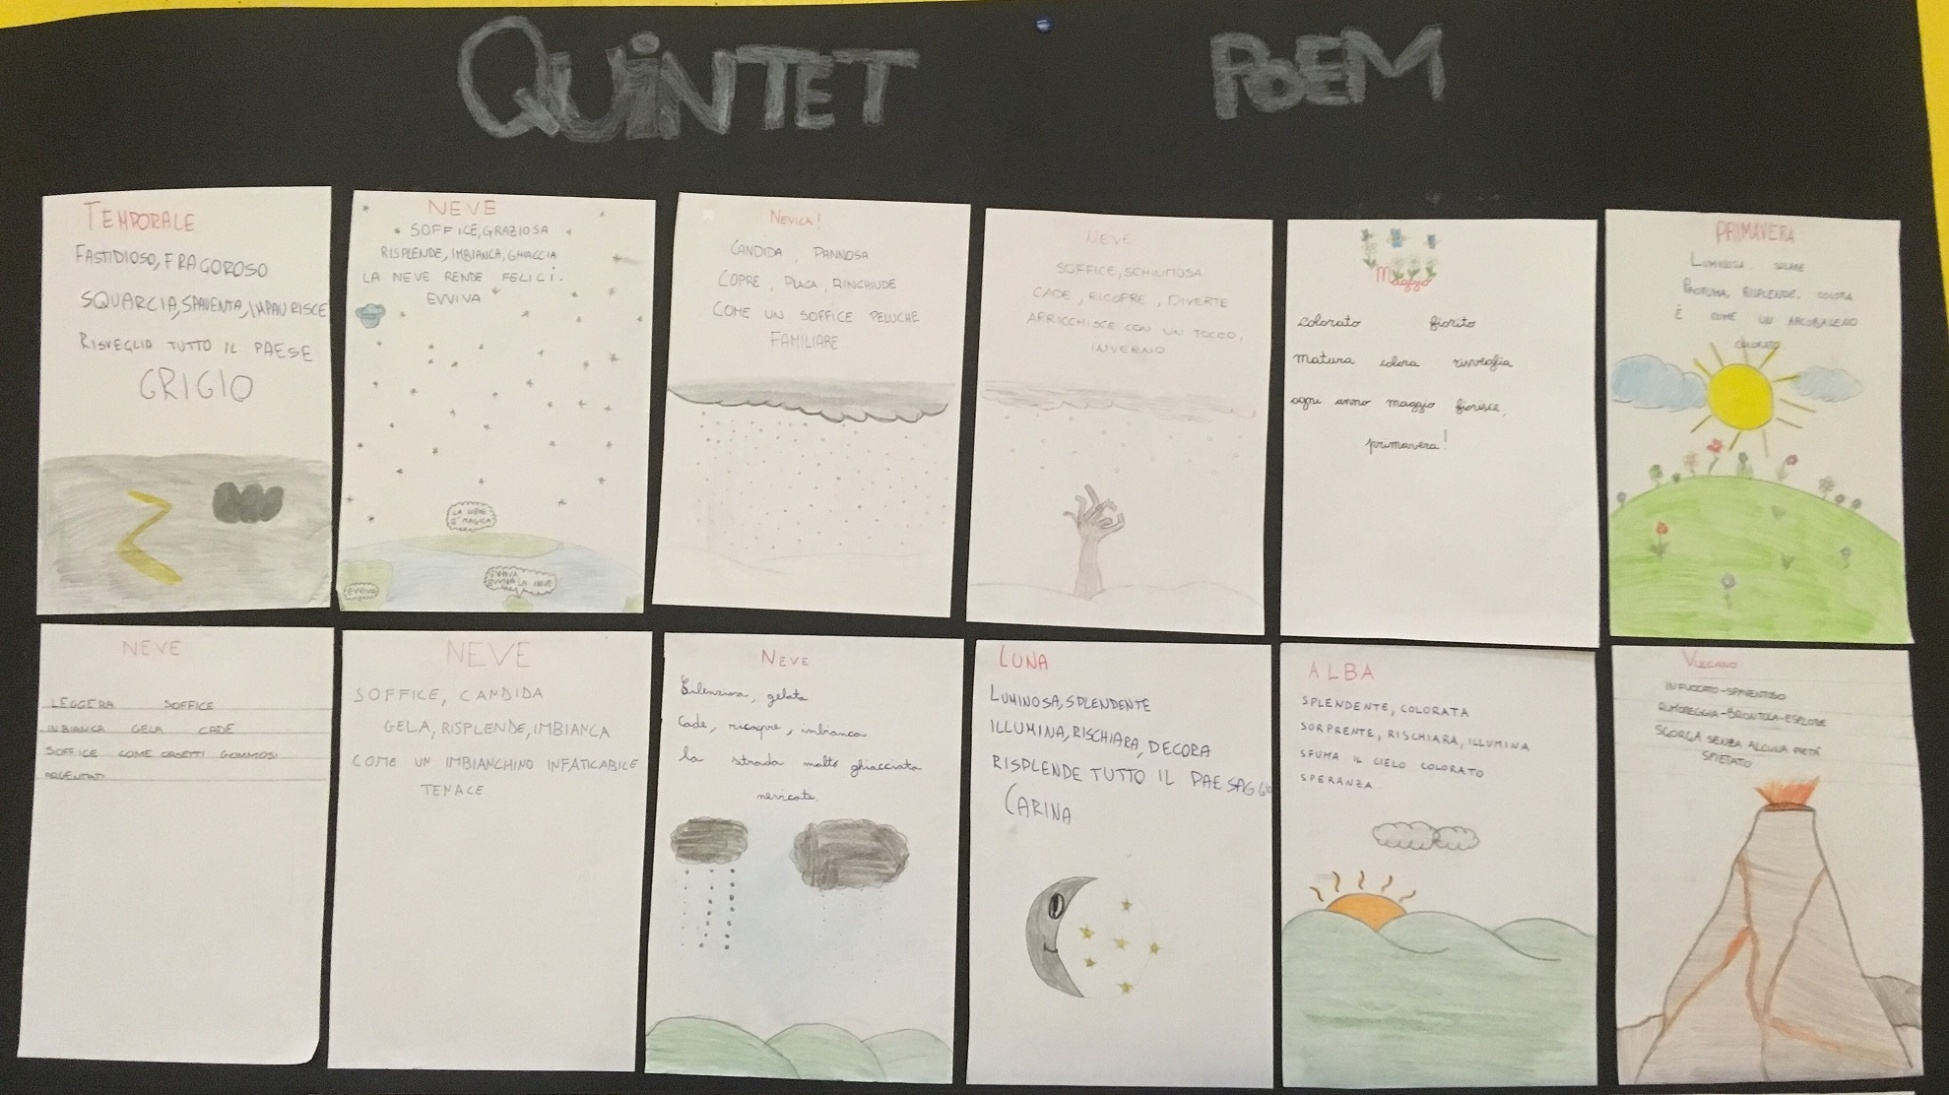 QUINTET POEM
TEMPORALE
FASTIDIOSO, FRAGOROSO
SQUARCIA, SPAVENTA, IMPAURISCE
RISVEGLIA TUTTO IL PAESE
GRIGIO
NEVE
SOFFICE, GRAZIOSA
RISPLENDE, IMBIANCA, GHIACCIA
LA NEVE RENDE FELICI.
EVVIVA
LA NEVE
E' MAGICA
EVVIVA
EVVIVA LA NEVE
EVVIVA
NEVICA!
CANDIDA, PANNOSA
COPRE, PLACA, RINCHIUDE
COME UN SOFFICE PELUCHE
FAMILIARE
NEVE
SOFFICE, SCHIUMOSA
CADE, RICOPRE, DIVERTE
ARRICCHISCE CON UN TOCCO,
INVERNO
Maggio
colorato fiorito
matura colora risveglia
ogni anno maggio fiorisce,
primavera!
PRIMAVERA
LUMINOSA, SOLARE
PROFUMA, RISPLENDE, COLORA
È COME UN ARCOBALENO
COLORATO
NEVE
LEGGERA SOFFICE
INBIANCA GELA CADE
SOFFICE COME ORSETTI GOMMOSI
ARGENTATI
NEVE
SOFFICE, CANDIDA
GELA, RISPLENDE, IMBIANCA
COME UN IMBIANCHINO INFATICABILE
TENACE
NEVE
Silenziosa, gelata
Cade, ricopre, imbianca
la strada molto ghiacciata
nevicata.
LUNA
LUMINOSA, SPLENDENTE
ILLUMINA, RISCHIARA, DECORA
RISPLENDE TUTTO IL PAESAGGIO
CARINA
ALBA
SPLENDENTE, COLORATA
SORPRENTE, RISCHIARA, ILLUMINA
SFUMA IL CIELO COLORATO
SPERANZA.
VULCANO
INFUOCATO-SPAVENTOSO
RUMOREGGIA-BRONTOLA-ESPLODE
SGORGA SENZA ALCUNA PIETÀ
SPIETATO